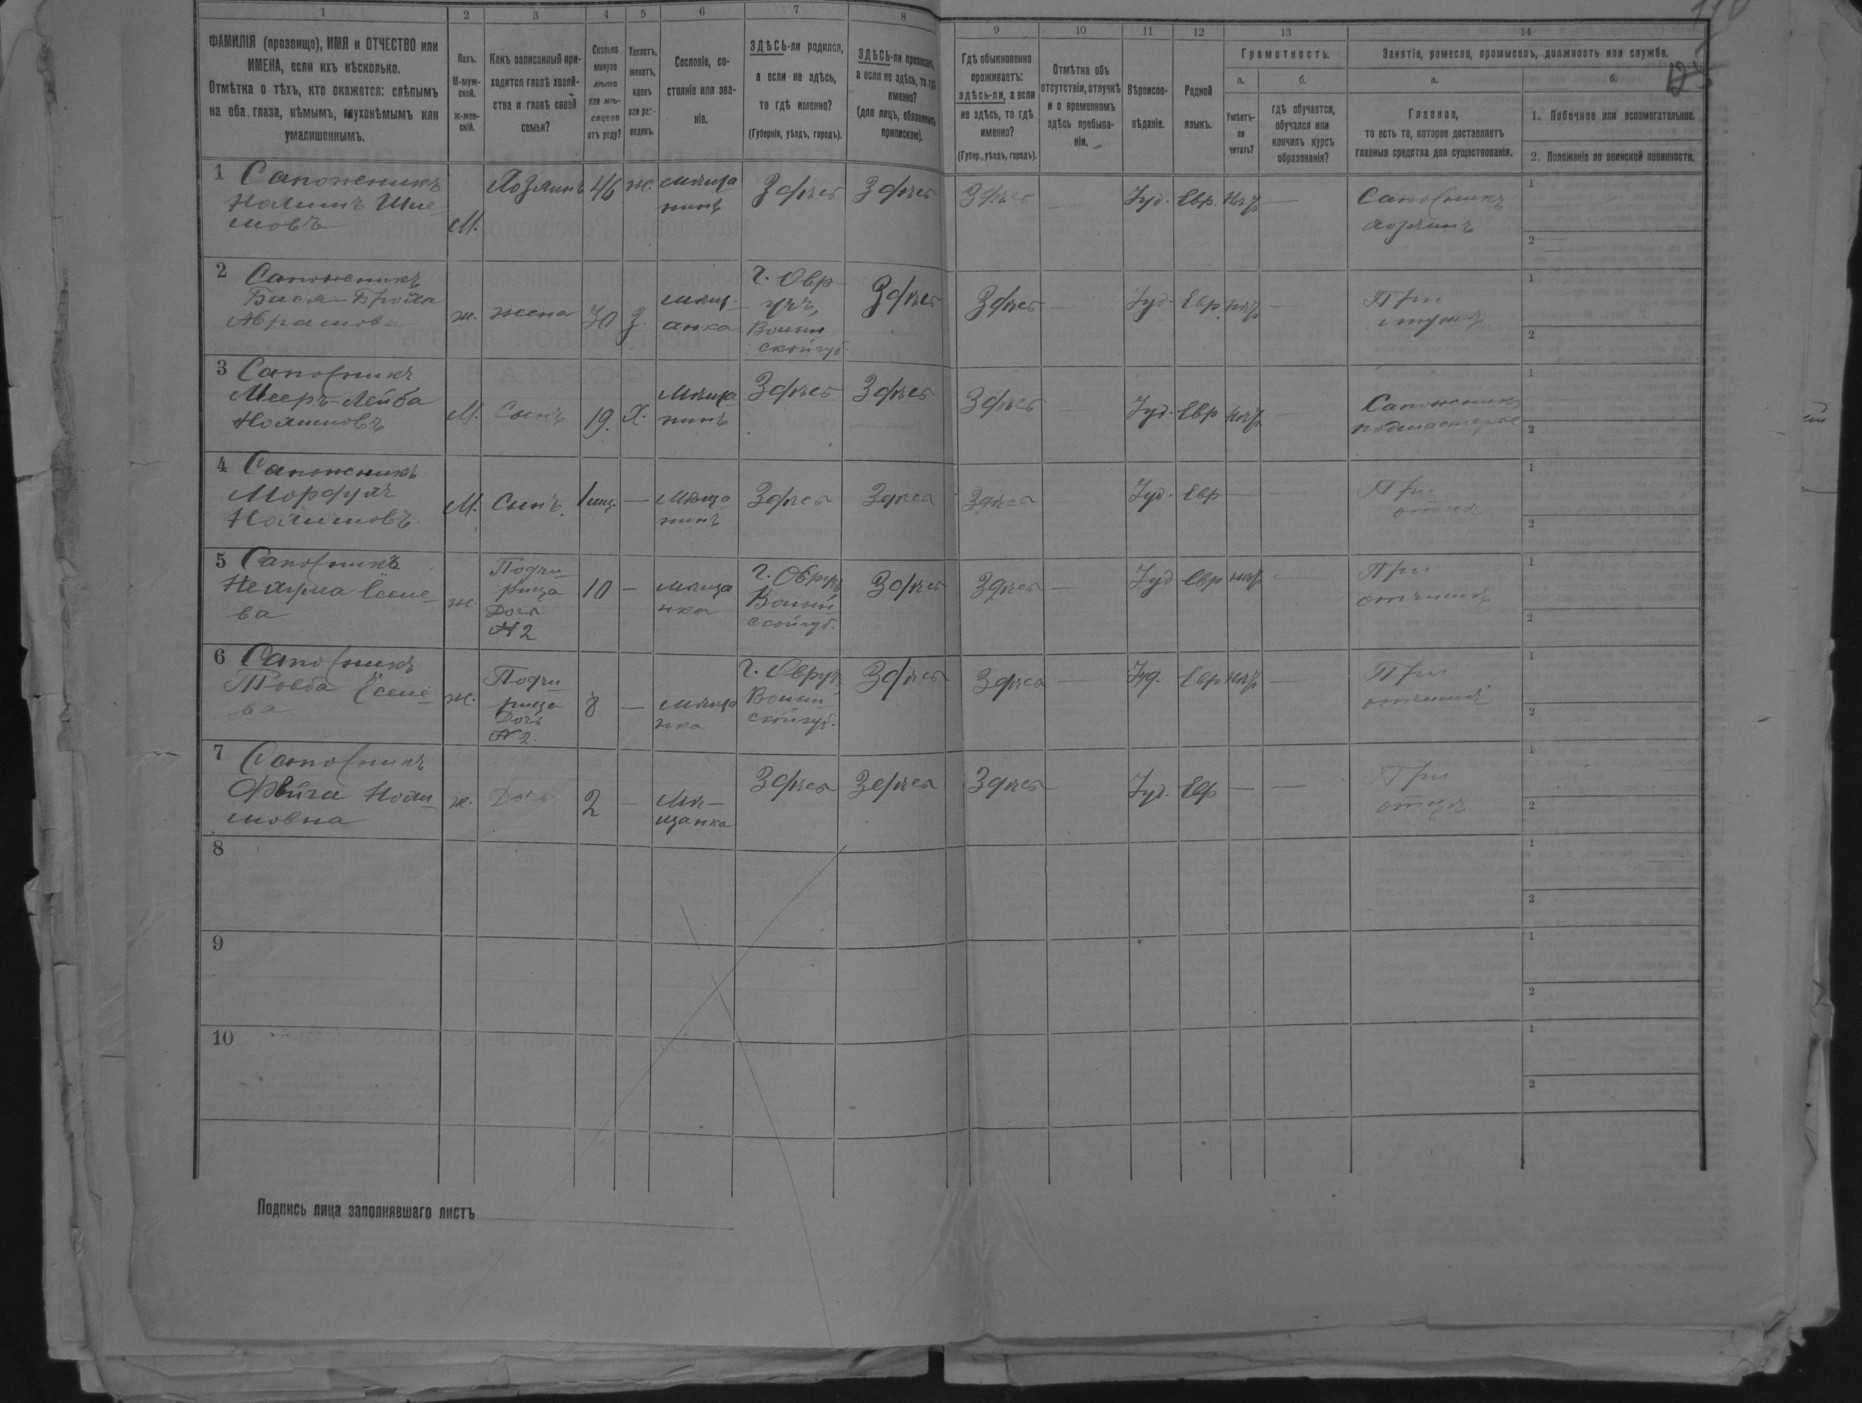 1 2 3 4 5 6 7 8 9 10 11 12 13 14
ФАМИЛІЯ (прозвище), ИМЯ и ОТЧЕСТВО или
ИМЕНА, если ихъ нѣсколько.
Отмѣтка о тѣхъ, кто окажется: слѣпымъ
на оба глаза, нѣмымъ, глухонѣмымъ или
умалишеннымъ.
Полъ.
М-муж-
ской.
Ж-жен-
скій.
Какъ записанный при-
ходится главѣ хозяй-
ства и главѣ своей
семьи?
Сколько
минуло
лѣтъ
или мѣ-
сяцевъ
отъ роду?
Холостъ,
женатъ,
вдовъ
или раз-
веденъ.
Сословіе, со-
стояніе или зва-
ніе.
ЗДѢСЬ-ли родился,
а если не здѣсь,
то гдѣ именно?
(Губернія, уѣздъ, городъ).
ЗДѢСЬ-ли приписанъ,
а если не здѣсь, то гдѣ
именно?
(для лицъ, обязанныхъ
припискою).
Гдѣ обыкновенно
проживаетъ:
здѣсь-ли, а если
не здѣсь, то гдѣ
именно?
(Губер., уѣздъ, городъ).
Отмѣтка объ
отсутствіи, отлучкѣ
и о временномъ
здѣсь пребыва-
ніи.
Вѣроиспо-
вѣданіе.
Родной
языкъ.
Грамотность.
а. б.
Умѣетъ-
ли
читать?
гдѣ обучается,
обучался или
кончилъ курсъ
образованія?
Занятія, ремесло, промыселъ, должность или служба.
а. б.
Главное,
то есть то, которое доставляетъ
главныя средства для существованія.
1. Побочное или вспомогательное.
2. Положеніе по воинской повинности.
1 Сапожникъ
М.
Хозяинъ
46
ж.
мѣща
нинъ
Здѣсь
Здѣсь
Здѣсь
—
Іуд.
Евр.
—
Сапожникъ
хозяинъ
1
2
2 Сапожникъ
Абрамова
ж.
жена
30
З.
мѣщ.
анка
г. Овр
учъ,
Волын
ской губ.
Здѣсь
Здѣсь
—
Іуд.
Евр.
—
При
мужѣ
1
2
3 Сапожникъ
Мееръ-Лейба
М.
Сынъ
19.
Х.
Мѣща
нинъ
Здѣсь
Здѣсь
Здѣсь
Іуд.
Евр
—
Сапожникъ
подмастерье
1
2
4 Сапожникъ
Мордухъ
М.
Сынъ.
—
Мѣща
нинъ
Здѣсь
Здѣсь
Здѣсь
—
Іуд.
Евр
— —
При
отцѣ
1
2
5 Сапожникъ
ва
ж.
Падче
рица
Дочь
№2
10
—
мѣща
нка
г. Овруч
Волын
ской губ.
Здѣсь
Здѣсь
—
Іуд
Евр
—
При
отчимѣ
1
2
6 Сапожникъ
ва
ж.
Падче
рица
Дочь
№2.
8
—
мѣща
нка
г. Овруч
Волын
ской губ.
Здѣсь
Здѣсь
—
Іуд.
Евр
—
При
отчимѣ
1
2
7 Сапожникъ
мовна
ж.
Дочь
2
—
Мѣ-
щанка
Здѣсь
Здѣсь
Здѣсь
Іуд.
Евр
— —
При
отцѣ
1
2
8
1
2
9
1
2
10
1
2
Подпись лица заполнявшаго листъ